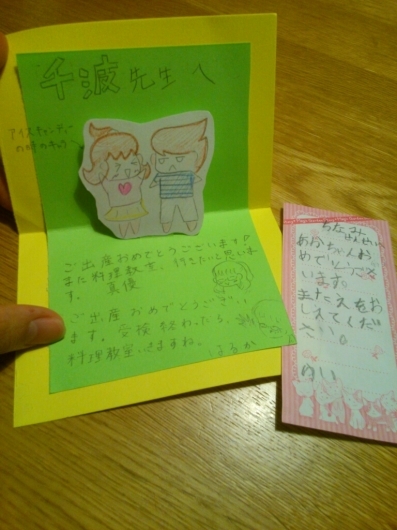 千波先生へ
アイスキャンディー
の時のキャラ
ご出産おめでとうございます♡
また料理教室、行きたいと思いま
す。 真優
ご出産おめでとうござい
ます。合検終わったら、
料理教室いきますね。
はるか
ちなみ
せんせい
あかちゃんお
めでとうござ
います。
またえをお
しえてくだ
さい。
ゆい